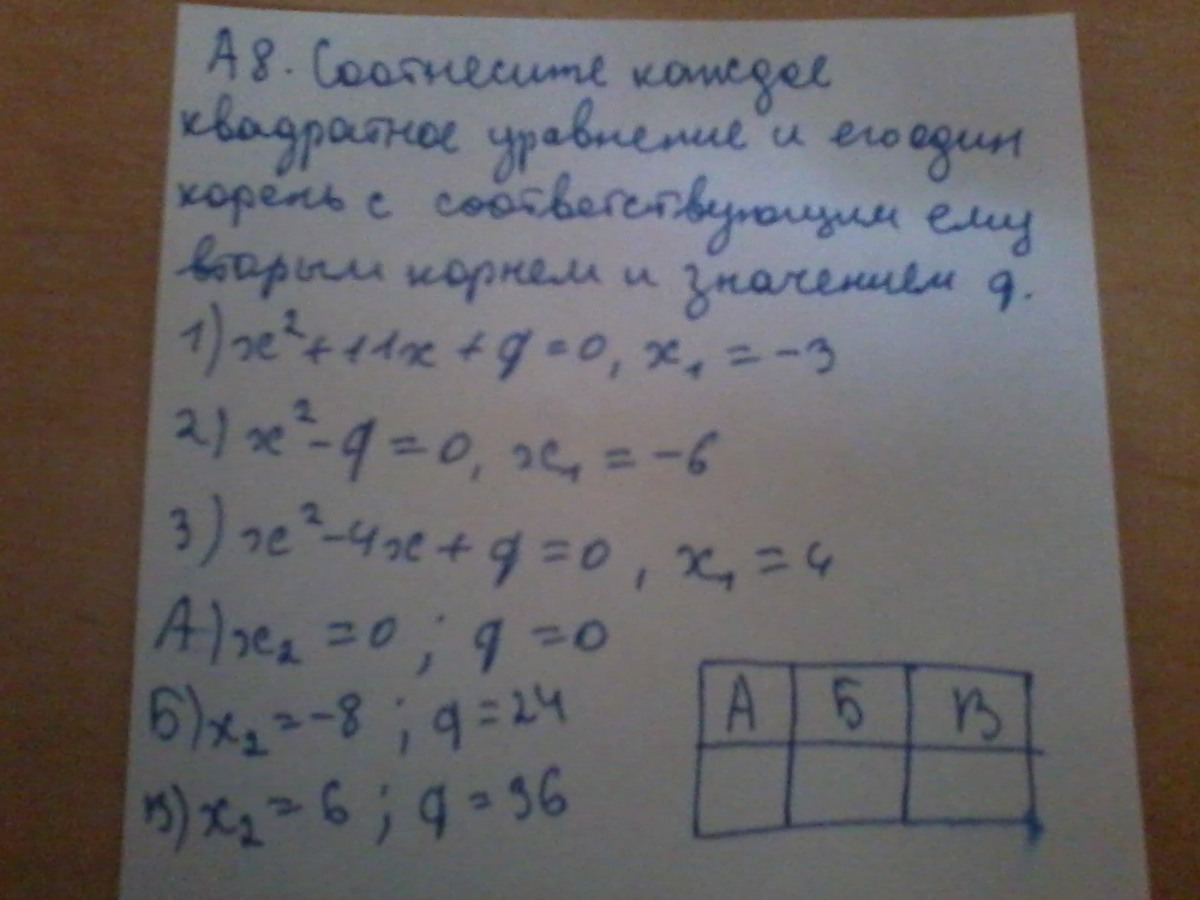 А8. Соотнесите каждое
квадратное уравнение и его один
корень с соответствующим ему
вторым корнем и значением q.
1) x² + 11x + q = 0, x₁ = -3
2) x² - q = 0, x₁ = -6
3) x² - 4x + q = 0, x₁ = 4
А) x₂ = 0; q = 0
Б) x₂ = -8; q = 24
В) x₂ = 6; q = 36
А Б В